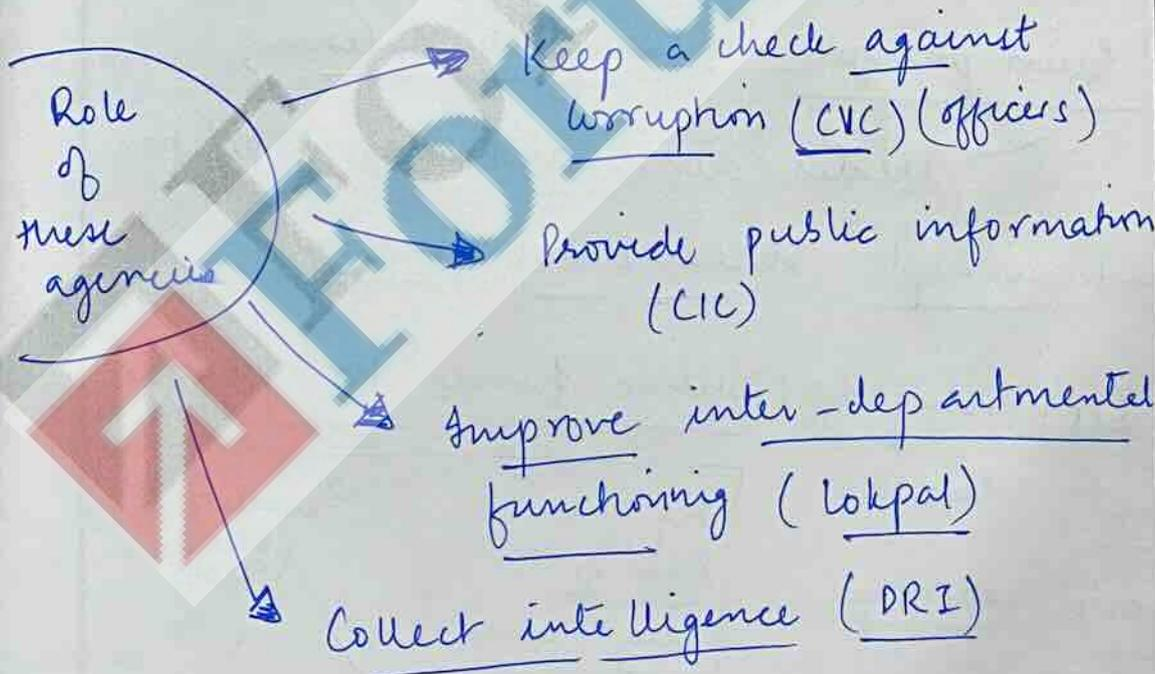 Role
of
these
agencies
Keep a check against
corruption (CVC) (officers)
Provide public information
(CIC)
Improve inter-departmental
functioning (Lokpal)
Collect intelligence (DRI)